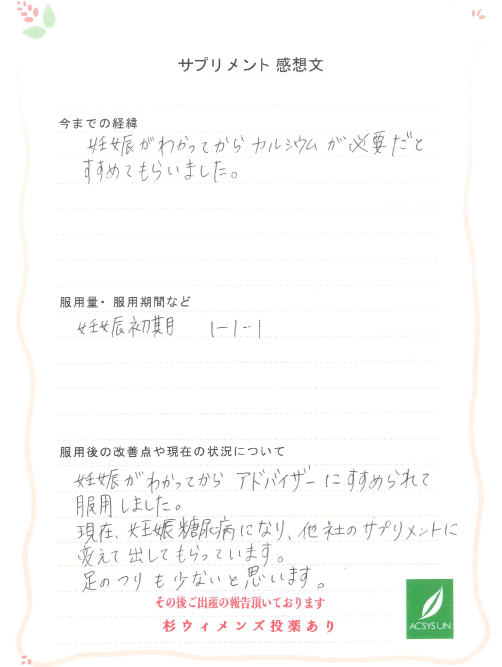 サプリメント 感想文
今までの経緯
妊娠がわかってから カルシウムが必要だと
すすめてもらいました。
服用量・服用期間など
妊娠初期 1-1-1
服用後の改善点や現在の状況について
妊娠がわかってから アドバイザーにすすめられて
服用しました。
現在、妊娠糖尿病になり、他社のサプリメントに
変えて出してもらっています。
足のつりも少ないと思います。
その後ご出産の報告頂いております
杉ウィメンズ投薬あり
ACSYSUN